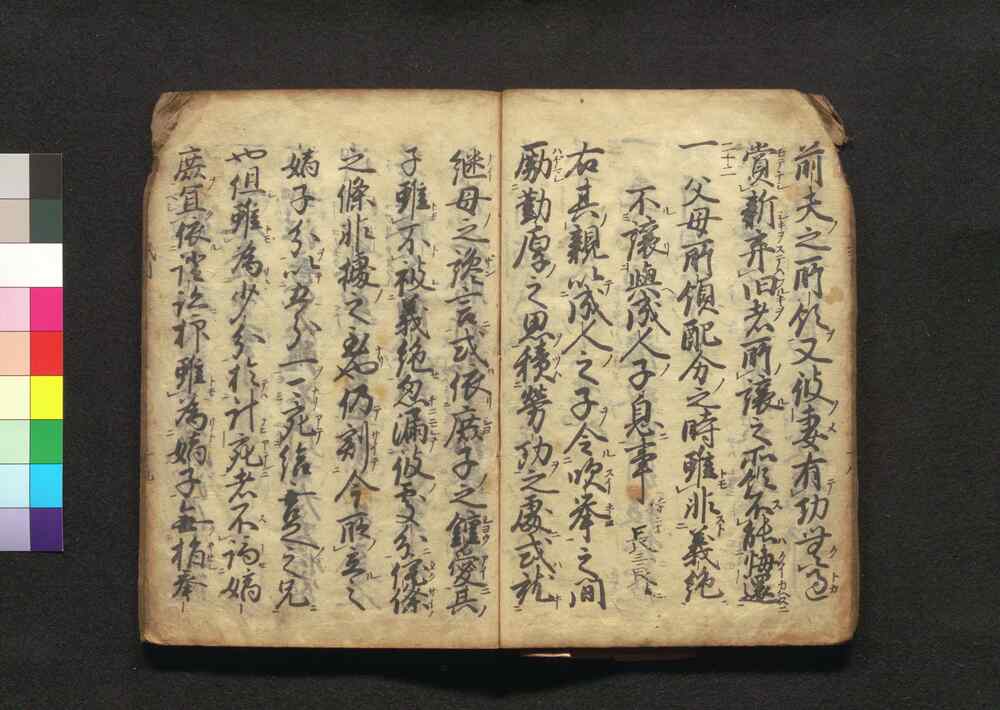 前夫之所領又彼妻有功無過
賞新弃旧者所譲之所領不能悔還
一 父母所領配分之時雖非義絶
不譲與成人子息事
右其親以成人之子令吹挙之間
励勤厚之思積労功之處或就
継母之讒言或依庶子之鍾愛其
子雖不被義絶忽漏彼處分侘傺
之條非據之至也仍割今所立之
嫡子分以五分一可宛給無足之兄
也但雖為少分於計宛者不論嫡
庶宜依證跡抑雖為嫡子無指奉